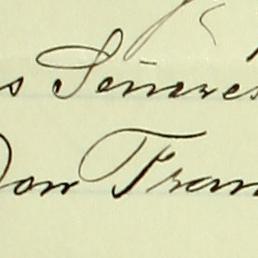 s Señores
Don Fran